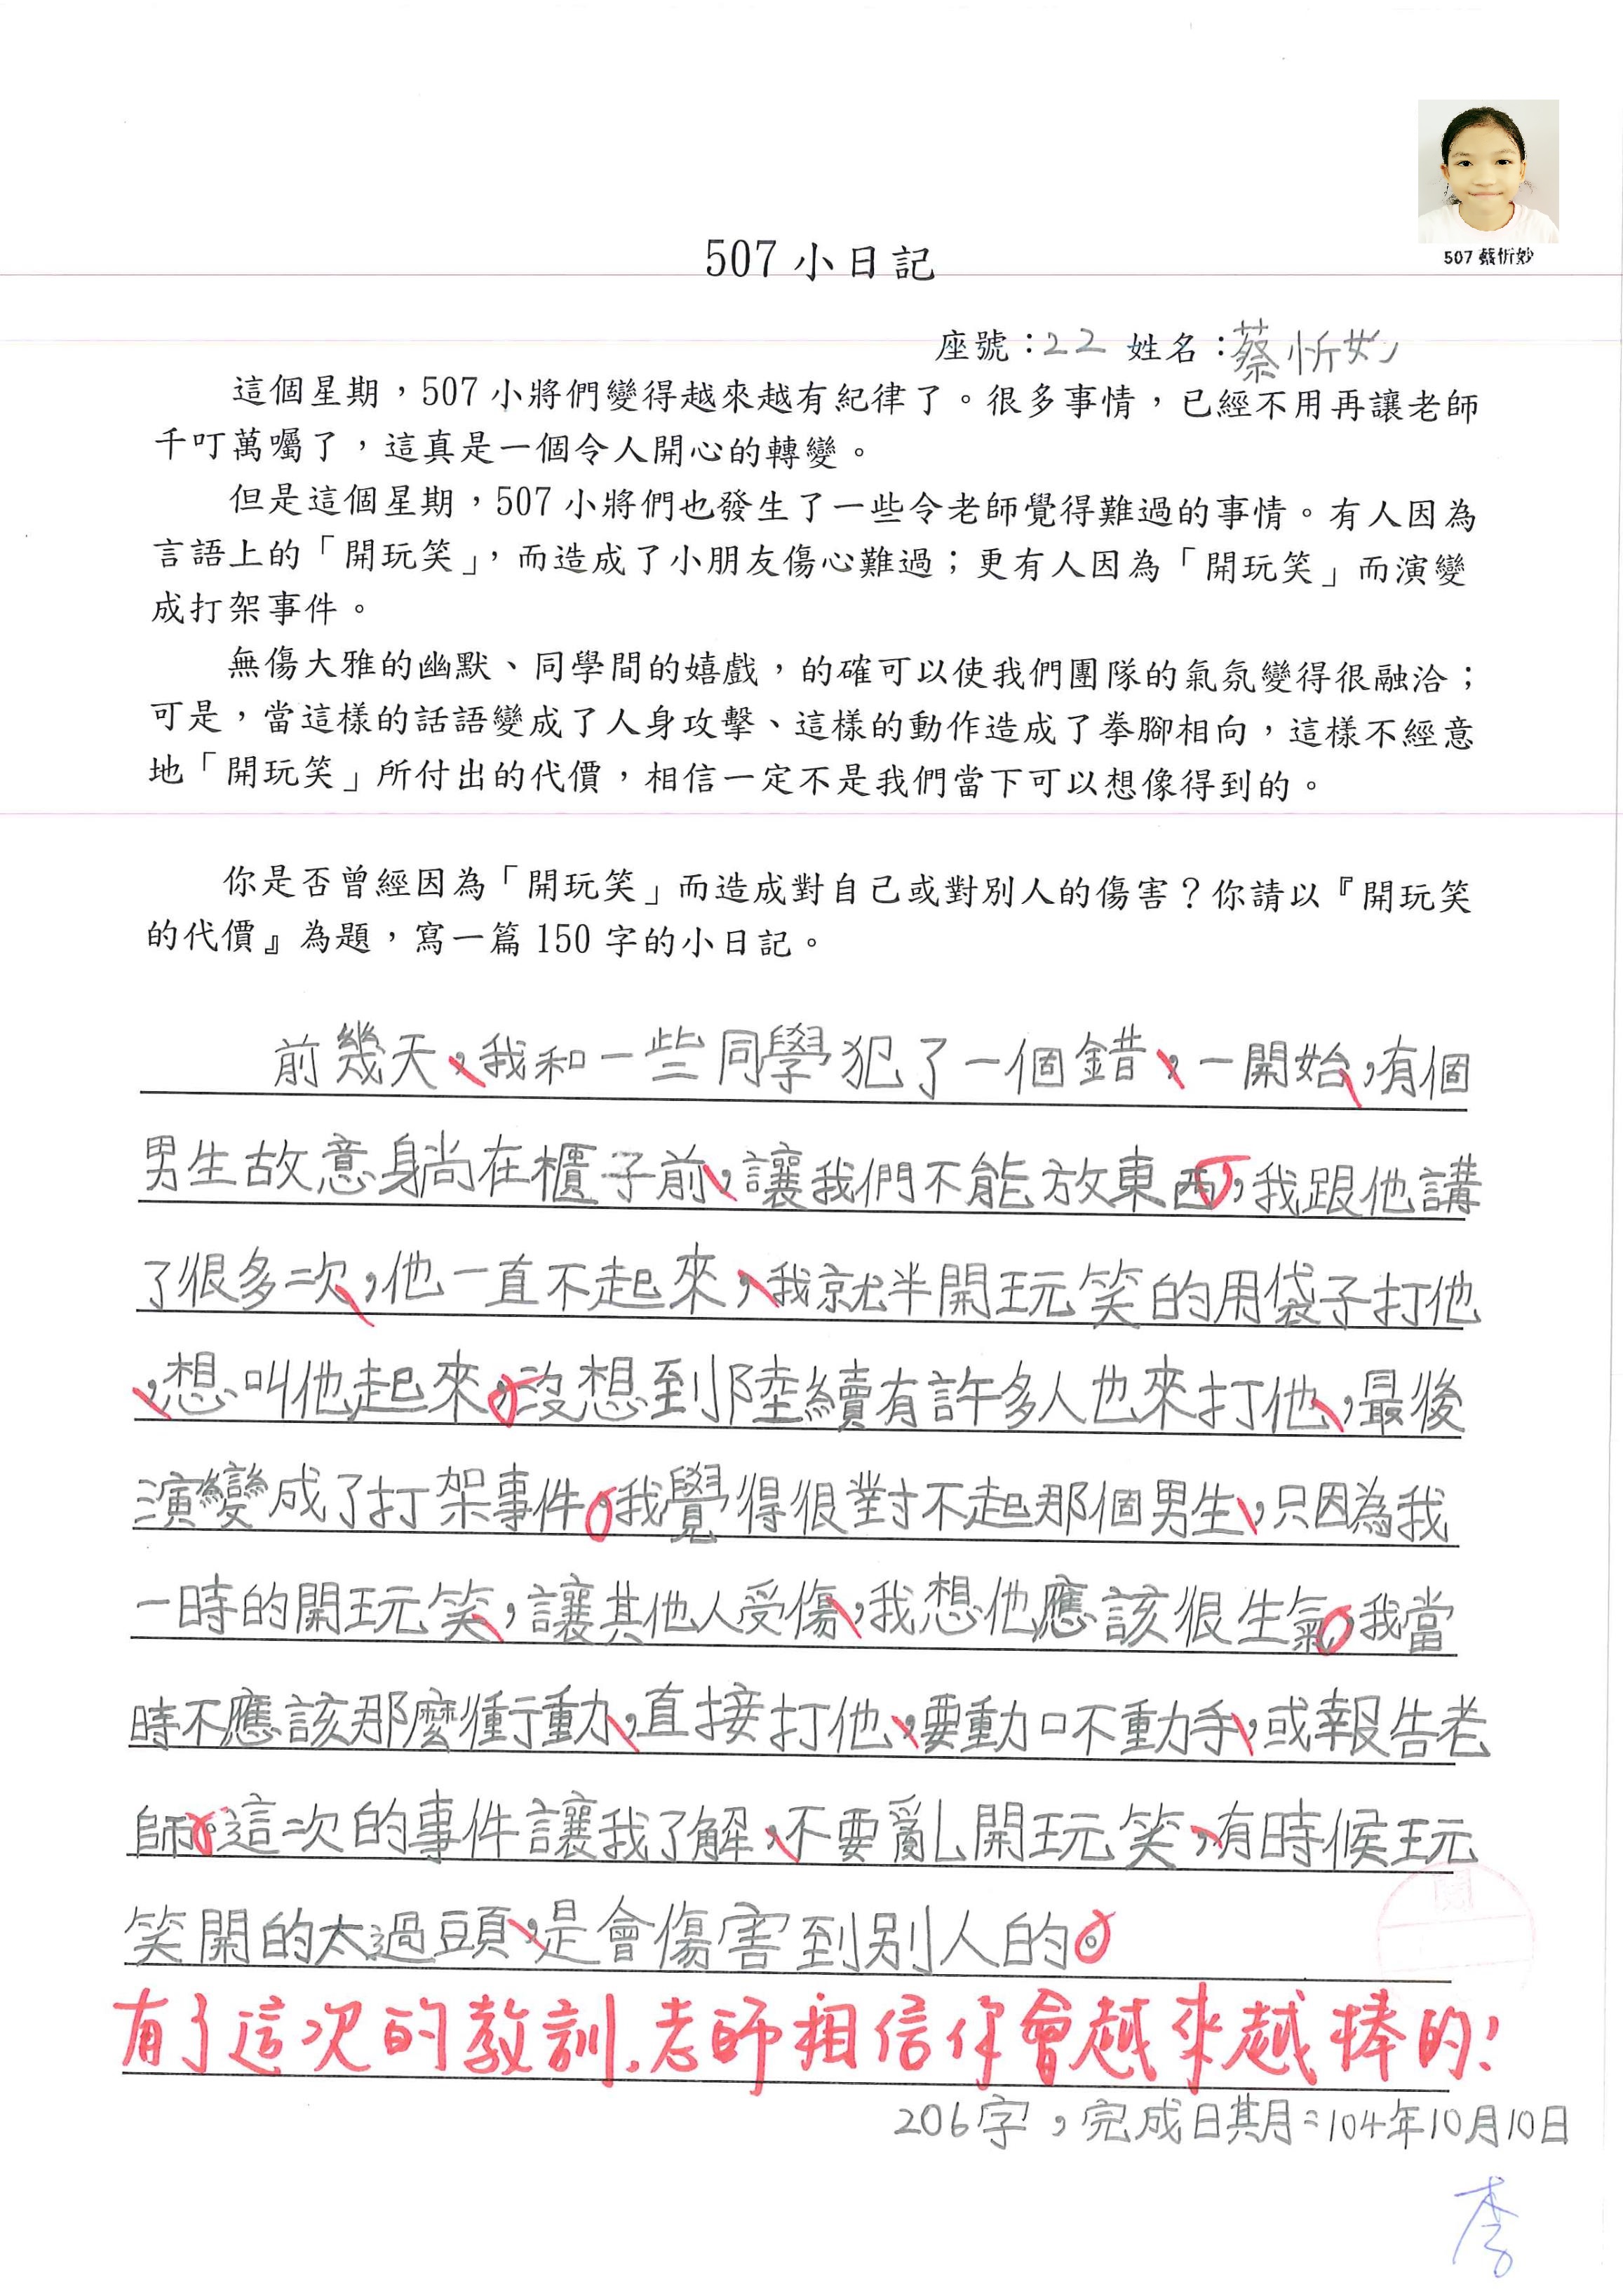 507 蔡忻妙
507 小日記
座號：22 姓名：蔡忻妙
這個星期，507 小將們變得越來越有紀律了。很多事情，已經不用再讓老師
千叮萬囑了，這真是一個令人開心的轉變。
但是這個星期，507 小將們也發生了一些令老師覺得難過的事情。有人因為
言語上的「開玩笑」，而造成了小朋友傷心難過；更有人因為「開玩笑」而演變
成打架事件。
無傷大雅的幽默、同學間的嬉戲，的確可以使我們團隊的氣氛變得很融洽；
可是，當這樣的話語變成了人身攻擊、這樣的動作造成了拳腳相向，這樣不經意
地「開玩笑」所付出的代價，相信一定不是我們當下可以想像得到的。
你是否曾經因為「開玩笑」而造成對自己或對別人的傷害？你請以『開玩笑
的代價』為題，寫一篇 150 字的小日記。
前幾天，我和一些同學犯了一個錯，一開始，有個
男生故意躺在櫃子前，讓我們不能放東西，我跟他講
了很多次，他一直不起來，我就半開玩笑的用袋子打他
，想叫他起來。沒想到陸續有許多人也來打他，最後
演變成了打架事件。我覺得很對不起那個男生，只因為我
一時的開玩笑，讓其他人受傷，我想他應該很生氣。我當
時不應該那麼衝動，直接打他，要動口不動手，或報告老
師。這次的事件讓我了解，不要亂開玩笑，有時候玩
笑開的太過頭，是會傷害到別人的。
有了這次的教訓，老師相信你會越來越棒的！
206字，完成日期：104年10月10日
閱
李